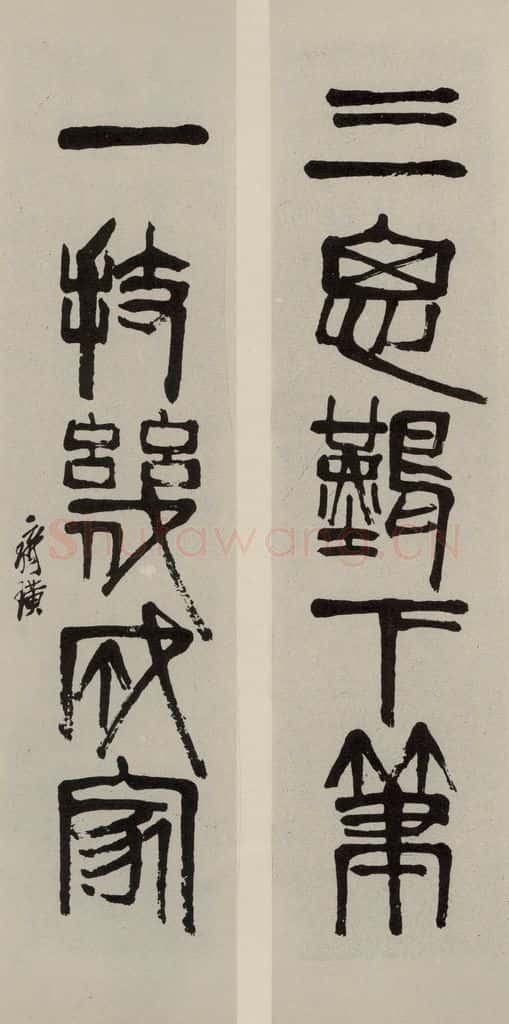 三思難下筆
一技幾成家
齊璜
Shufawang.CN